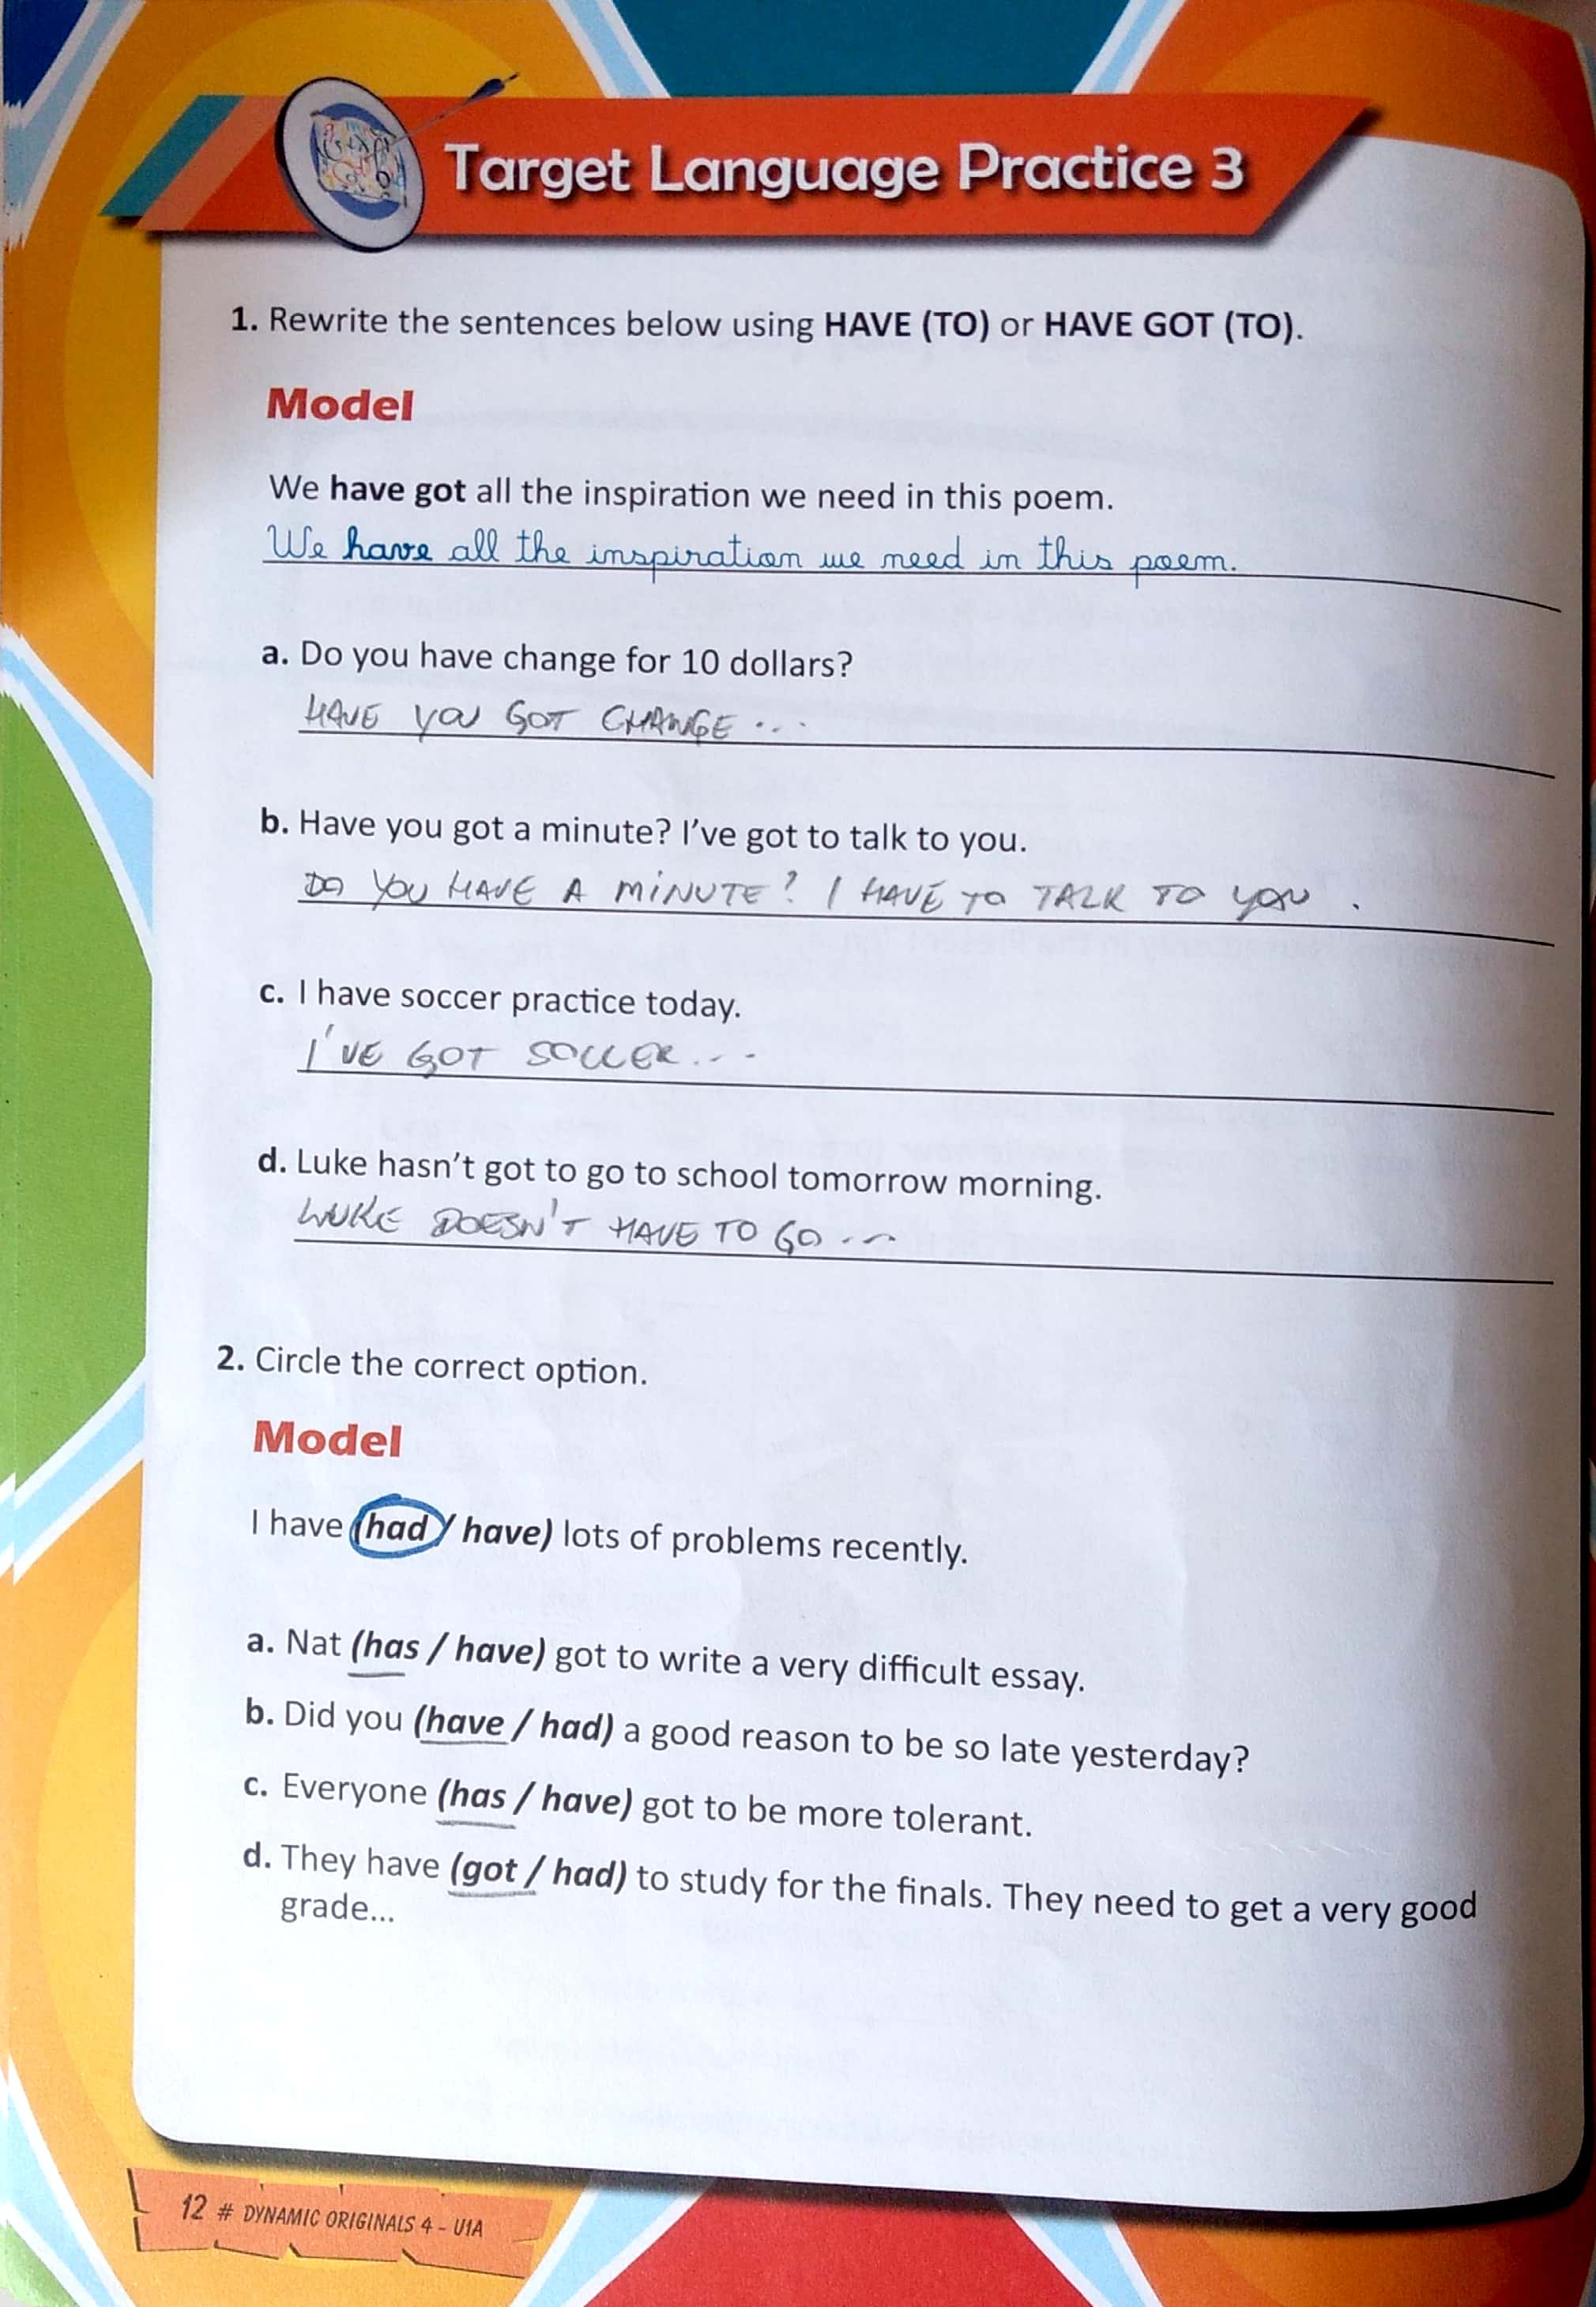 Target Language Practice 3
1. Rewrite the sentences below using HAVE (TO) or HAVE GOT (TO).
Model
We have got all the inspiration we need in this poem.
We have all the inspiration we need in this poem.
a. Do you have change for 10 dollars?
HAVE YOU GOT CHANGE ...
b. Have you got a minute? I've got to talk to you.
DO YOU HAVE A MINUTE? I HAVE TO TALK TO YOU.
c. I have soccer practice today.
I'VE GOT SOCCER...
d. Luke hasn't got to go to school tomorrow morning.
LUKE DOESN'T HAVE TO GO...
2. Circle the correct option.
Model
I have (had / have) lots of problems recently.
a. Nat (has / have) got to write a very difficult essay.
b. Did you (have / had) a good reason to be so late yesterday?
c. Everyone (has / have) got to be more tolerant.
d. They have (got / had) to study for the finals. They need to get a very good
grade...
12 # DYNAMIC ORIGINALS 4 - U1A